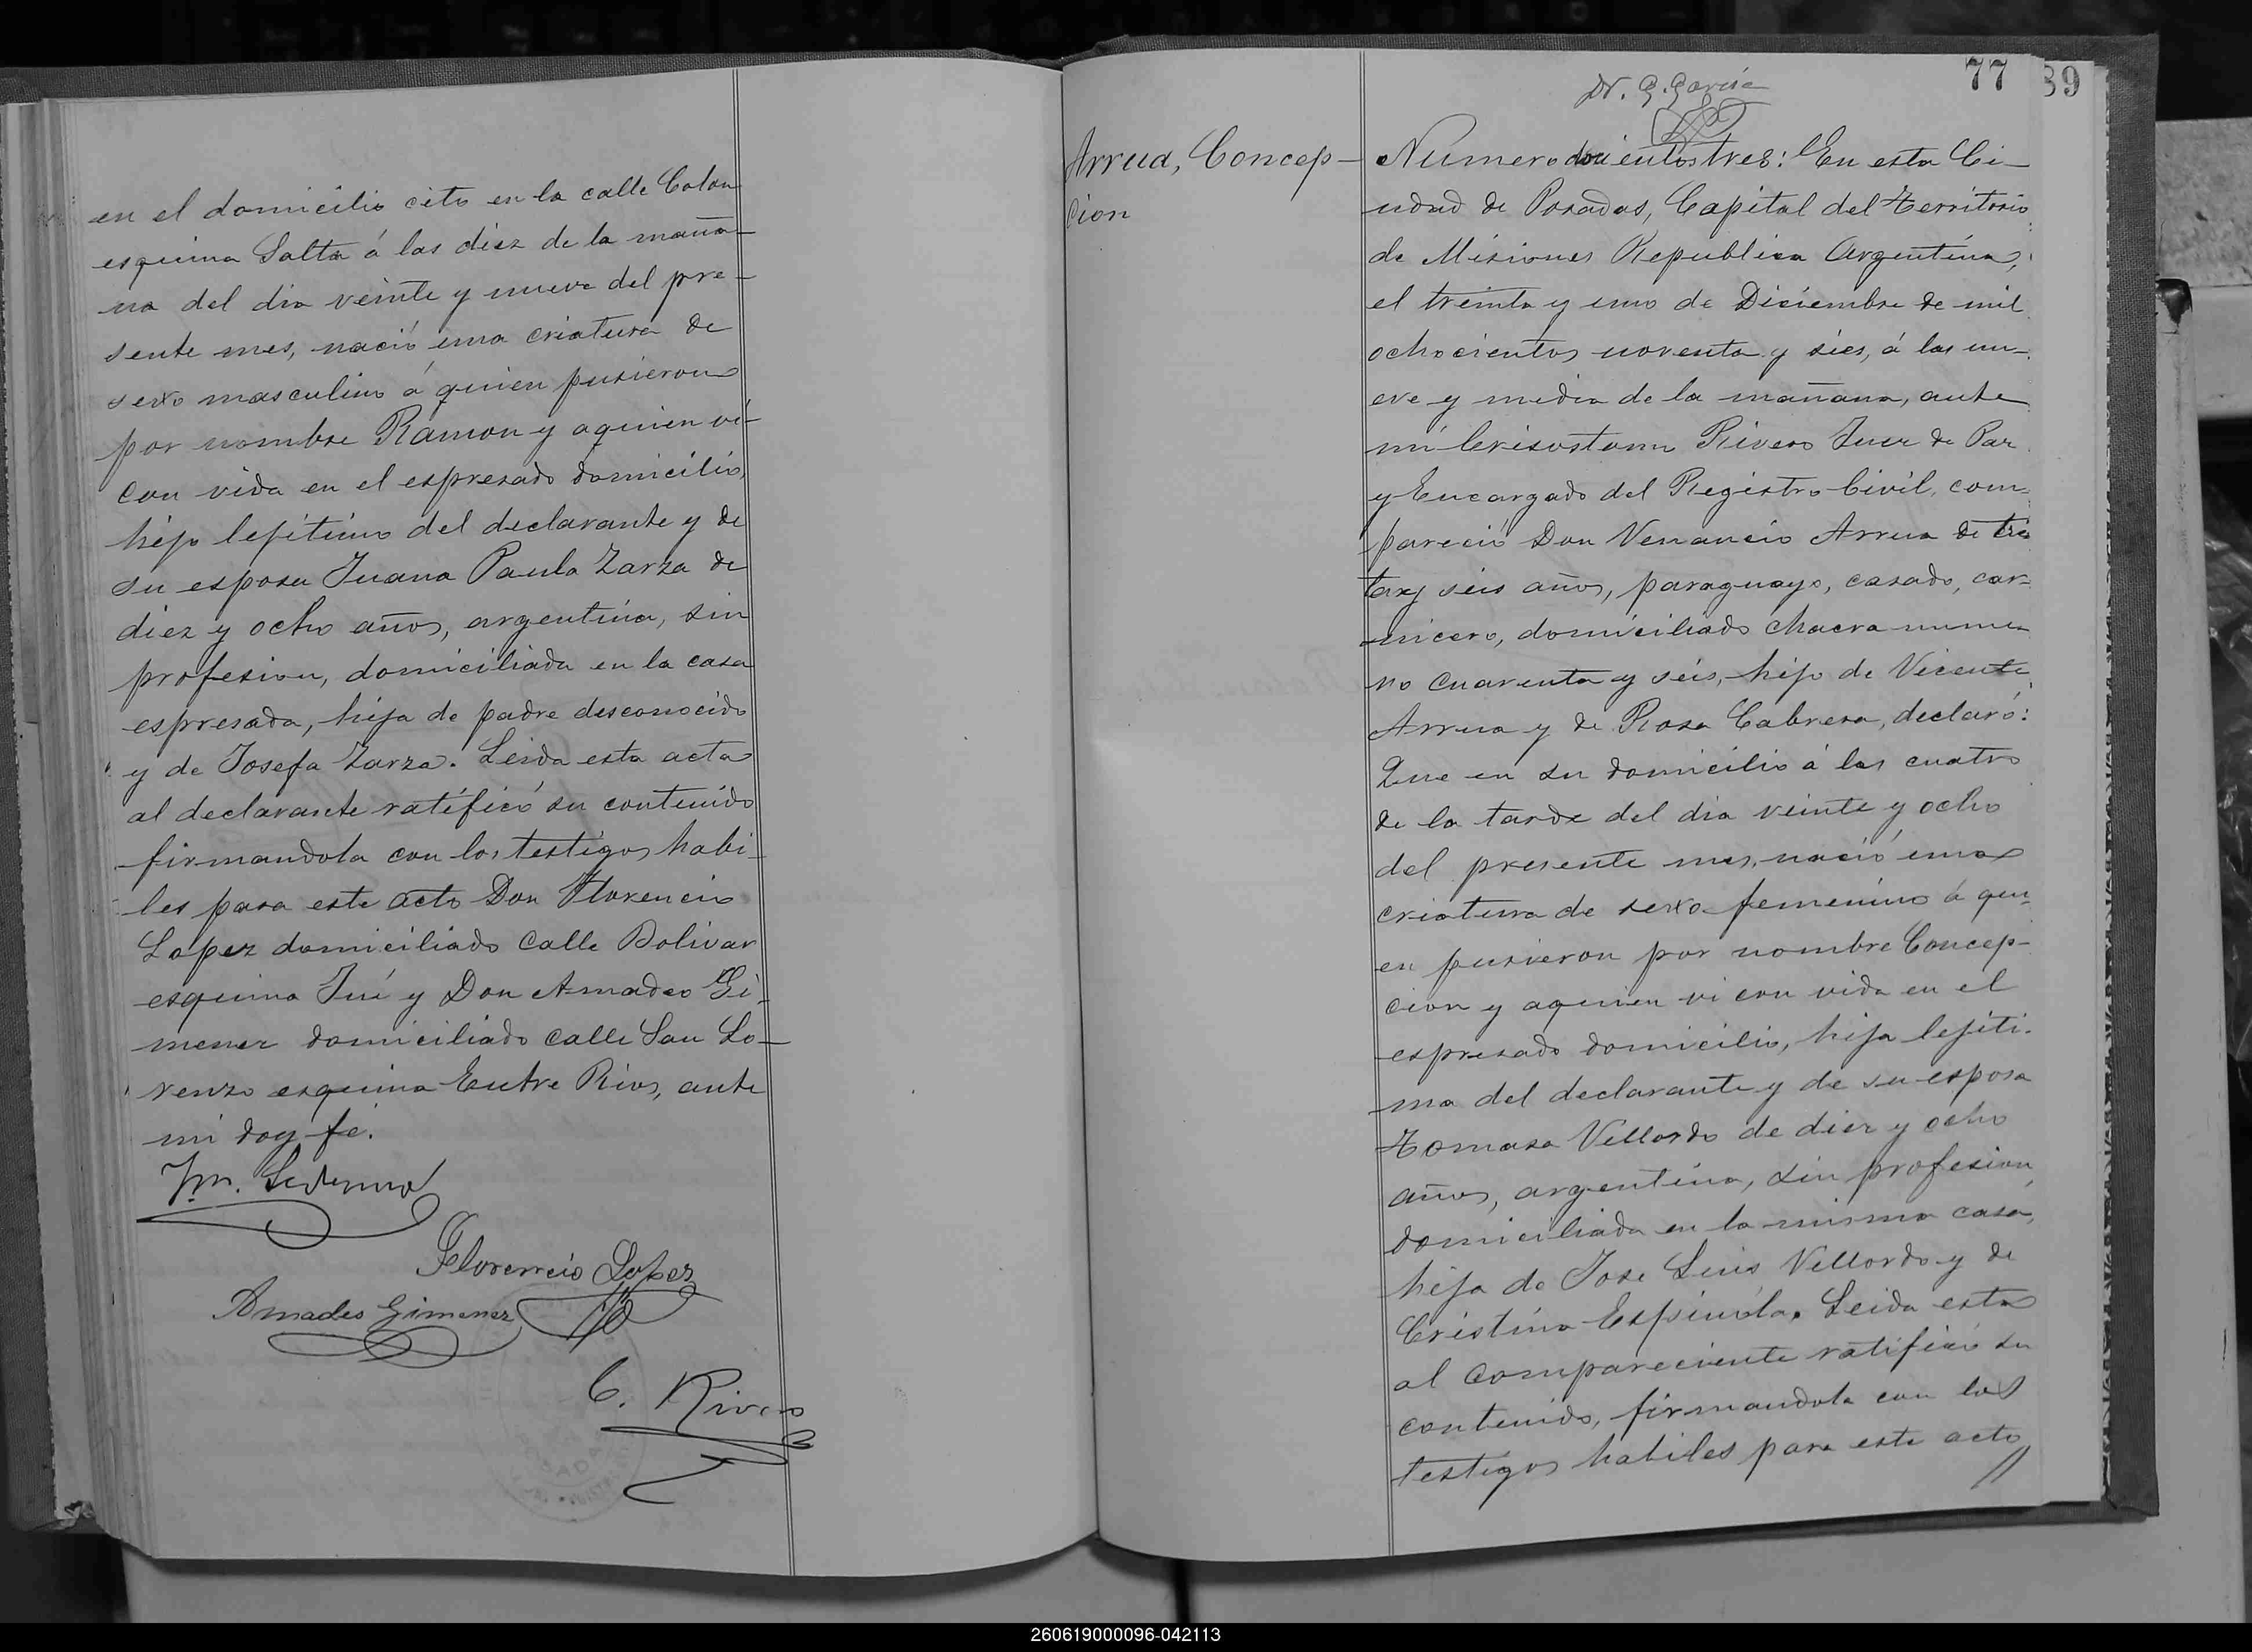 en el domicilio cito en la calle Colon
esquina Salta á las diez de la maña-
na del dia veinte y nueve del pre-
sente mes, nació una criatura de
sexo masculino á quien pusieron
por nombre Ramon y aquien vi
con vida en el espresado domicilio,
hijo lejitimo del declarante y de
su esposa Juana Paula Zarza de
diez y ocho años, argentina, sin
profesion, domiciliada en la casa
espresada, hija de padre desconocido
y de Josefa Zarza. Leida esta acta
al declarante ratificó su contenido
firmandola con los testigos habi-
les para este acto Don Florencio
Lopez domiciliado calle Bolivar
esquina Juí y Don Amadeo Gi-
menez domiciliado calle San Lo-
renzo esquina Entre Rios, ante
mi doy fé.
Florencio Lopez
Amadeo Gimenez
C. Rivero
77
89
Dr. G. Garcia
Arrua, Concep-
cion
Numero docientos tres: En esta Ci-
udad de Posadas, Capital del Territorio
de Misiones Republica Argentina,
el treinta y uno de Diciembre de mil
ochocientos noventa y seis, á las nu-
eve y media de la mañana, ante
mi Crisostomo Rivero Juez de Paz
y Encargado del Registro Civil, com-
pareció Don Venancio Arrua de trein
ta y seis años, paraguayo, casado, car-
nicero, domiciliado chacra nume
ro cuarenta y seis, hijo de Vicente
Arrua y de Rosa Cabrera, declaró:
Que en su domicilio á las cuatro
de la tarde del dia veinte y ocho
del presente mes, nació una
criatura de sexo femenino á qui-
en pusieron por nombre Concep-
cion y aquien vi con vida en el
espresado domicilio, hija lejiti-
ma del declarante y de su esposa
Tomasa Vellordo de diez y ocho
años, argentina, sin profesion,
domiciliada en la misma casa,
hija de Jose Luis Vellordo y de
Cristina Espinola. Leida esta
al compareciente ratificó su
contenido, firmandola con los
testigos habiles para este acto
260619000096-042113